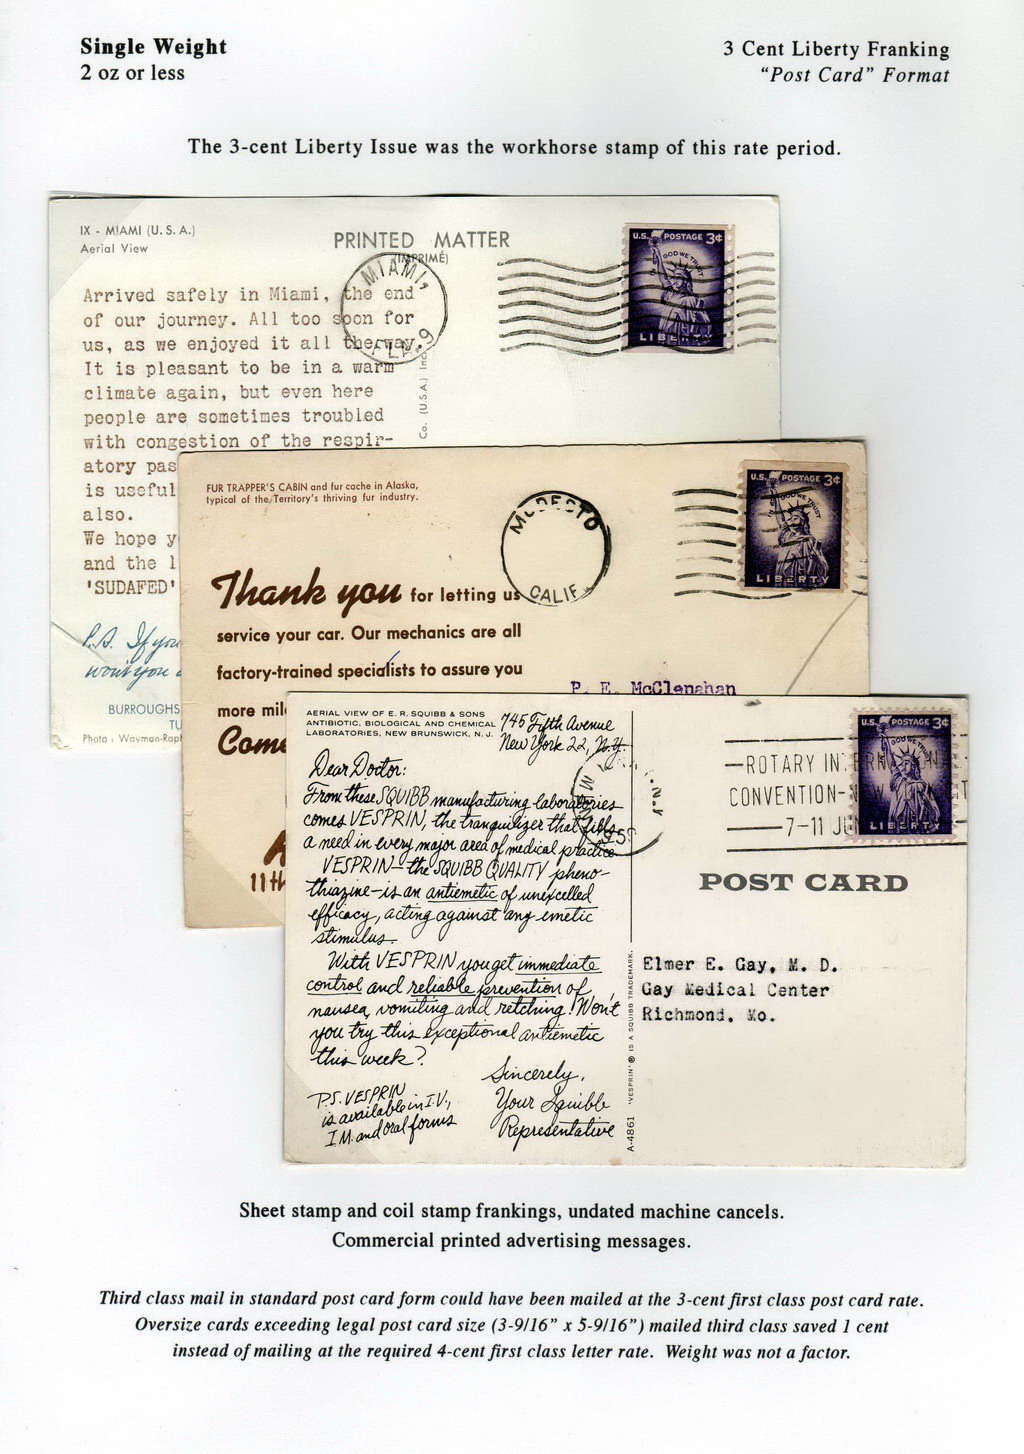 Single Weight
2 oz or less
3 Cent Liberty Franking
“Post Card” Format
The 3-cent Liberty Issue was the workhorse stamp of this rate period.
IX - MIAMI (U.S.A.)
Aerial View
PRINTED MATTER
(IMPRIMÉ)
MIAMI,
FLA. 9
U.S. POSTAGE 3¢
IN GOD WE TRUST
LIBERTY
Arrived safely in Miami, the end
of our journey. All too soon for
us, as we enjoyed it all the way.
It is pleasant to be in a warm
climate again, but even here
people are sometimes troubled
with congestion of the respir-
atory pas
is useful
also.
We hope y
and the l
'SUDAFED'
P.S. If you
won't you
BURROUGHS
TU
Photo : Wayman-Raph
Co. (U.S.A.) Inc.
FUR TRAPPER'S CABIN and fur cache in Alaska,
typical of the Territory's thriving fur industry.
MODESTO
CALIF.
U.S. POSTAGE 3¢
IN GOD WE TRUST
LIBERTY
Thank you for letting us
service your car. Our mechanics are all
factory-trained specialists to assure you
more mil
Come
A
11th
P. E. McClenahan
AERIAL VIEW OF E. R. SQUIBB & SONS
ANTIBIOTIC, BIOLOGICAL AND CHEMICAL
LABORATORIES, NEW BRUNSWICK, N. J.
745 Fifth Avenue
New York 22, N.Y.
Dear Doctor:
From these SQUIBB manufacturing laboratories
comes VESPRIN, the tranquilizer that fills
a need in every major area of medical practice.
VESPRIN—the SQUIBB QUALITY pheno-
thiazine—is an antiemetic of unexcelled
efficacy, acting against any emetic
stimulus.
With VESPRIN you get immediate
control and reliable prevention of
nausea, vomiting and retching! Won't
you try this exceptional antiemetic
this week?
Sincerely,
Your Squibb
Representative
P.S. VESPRIN
is available in I.V.,
I.M. and oral forms
A-4861 'VESPRIN'® IS A SQUIBB TRADEMARK.
ROTARY INTERNATIONAL
CONVENTION-NEW
7-11 JU
U.S. POSTAGE 3¢
IN GOD WE TRUST
LIBERTY
POST CARD
Elmer E. Gay, M. D.
Gay Medical Center
Richmond, Mo.
Sheet stamp and coil stamp frankings, undated machine cancels.
Commercial printed advertising messages.
Third class mail in standard post card form could have been mailed at the 3-cent first class post card rate.
Oversize cards exceeding legal post card size (3-9/16” x 5-9/16”) mailed third class saved 1 cent
instead of mailing at the required 4-cent first class letter rate. Weight was not a factor.